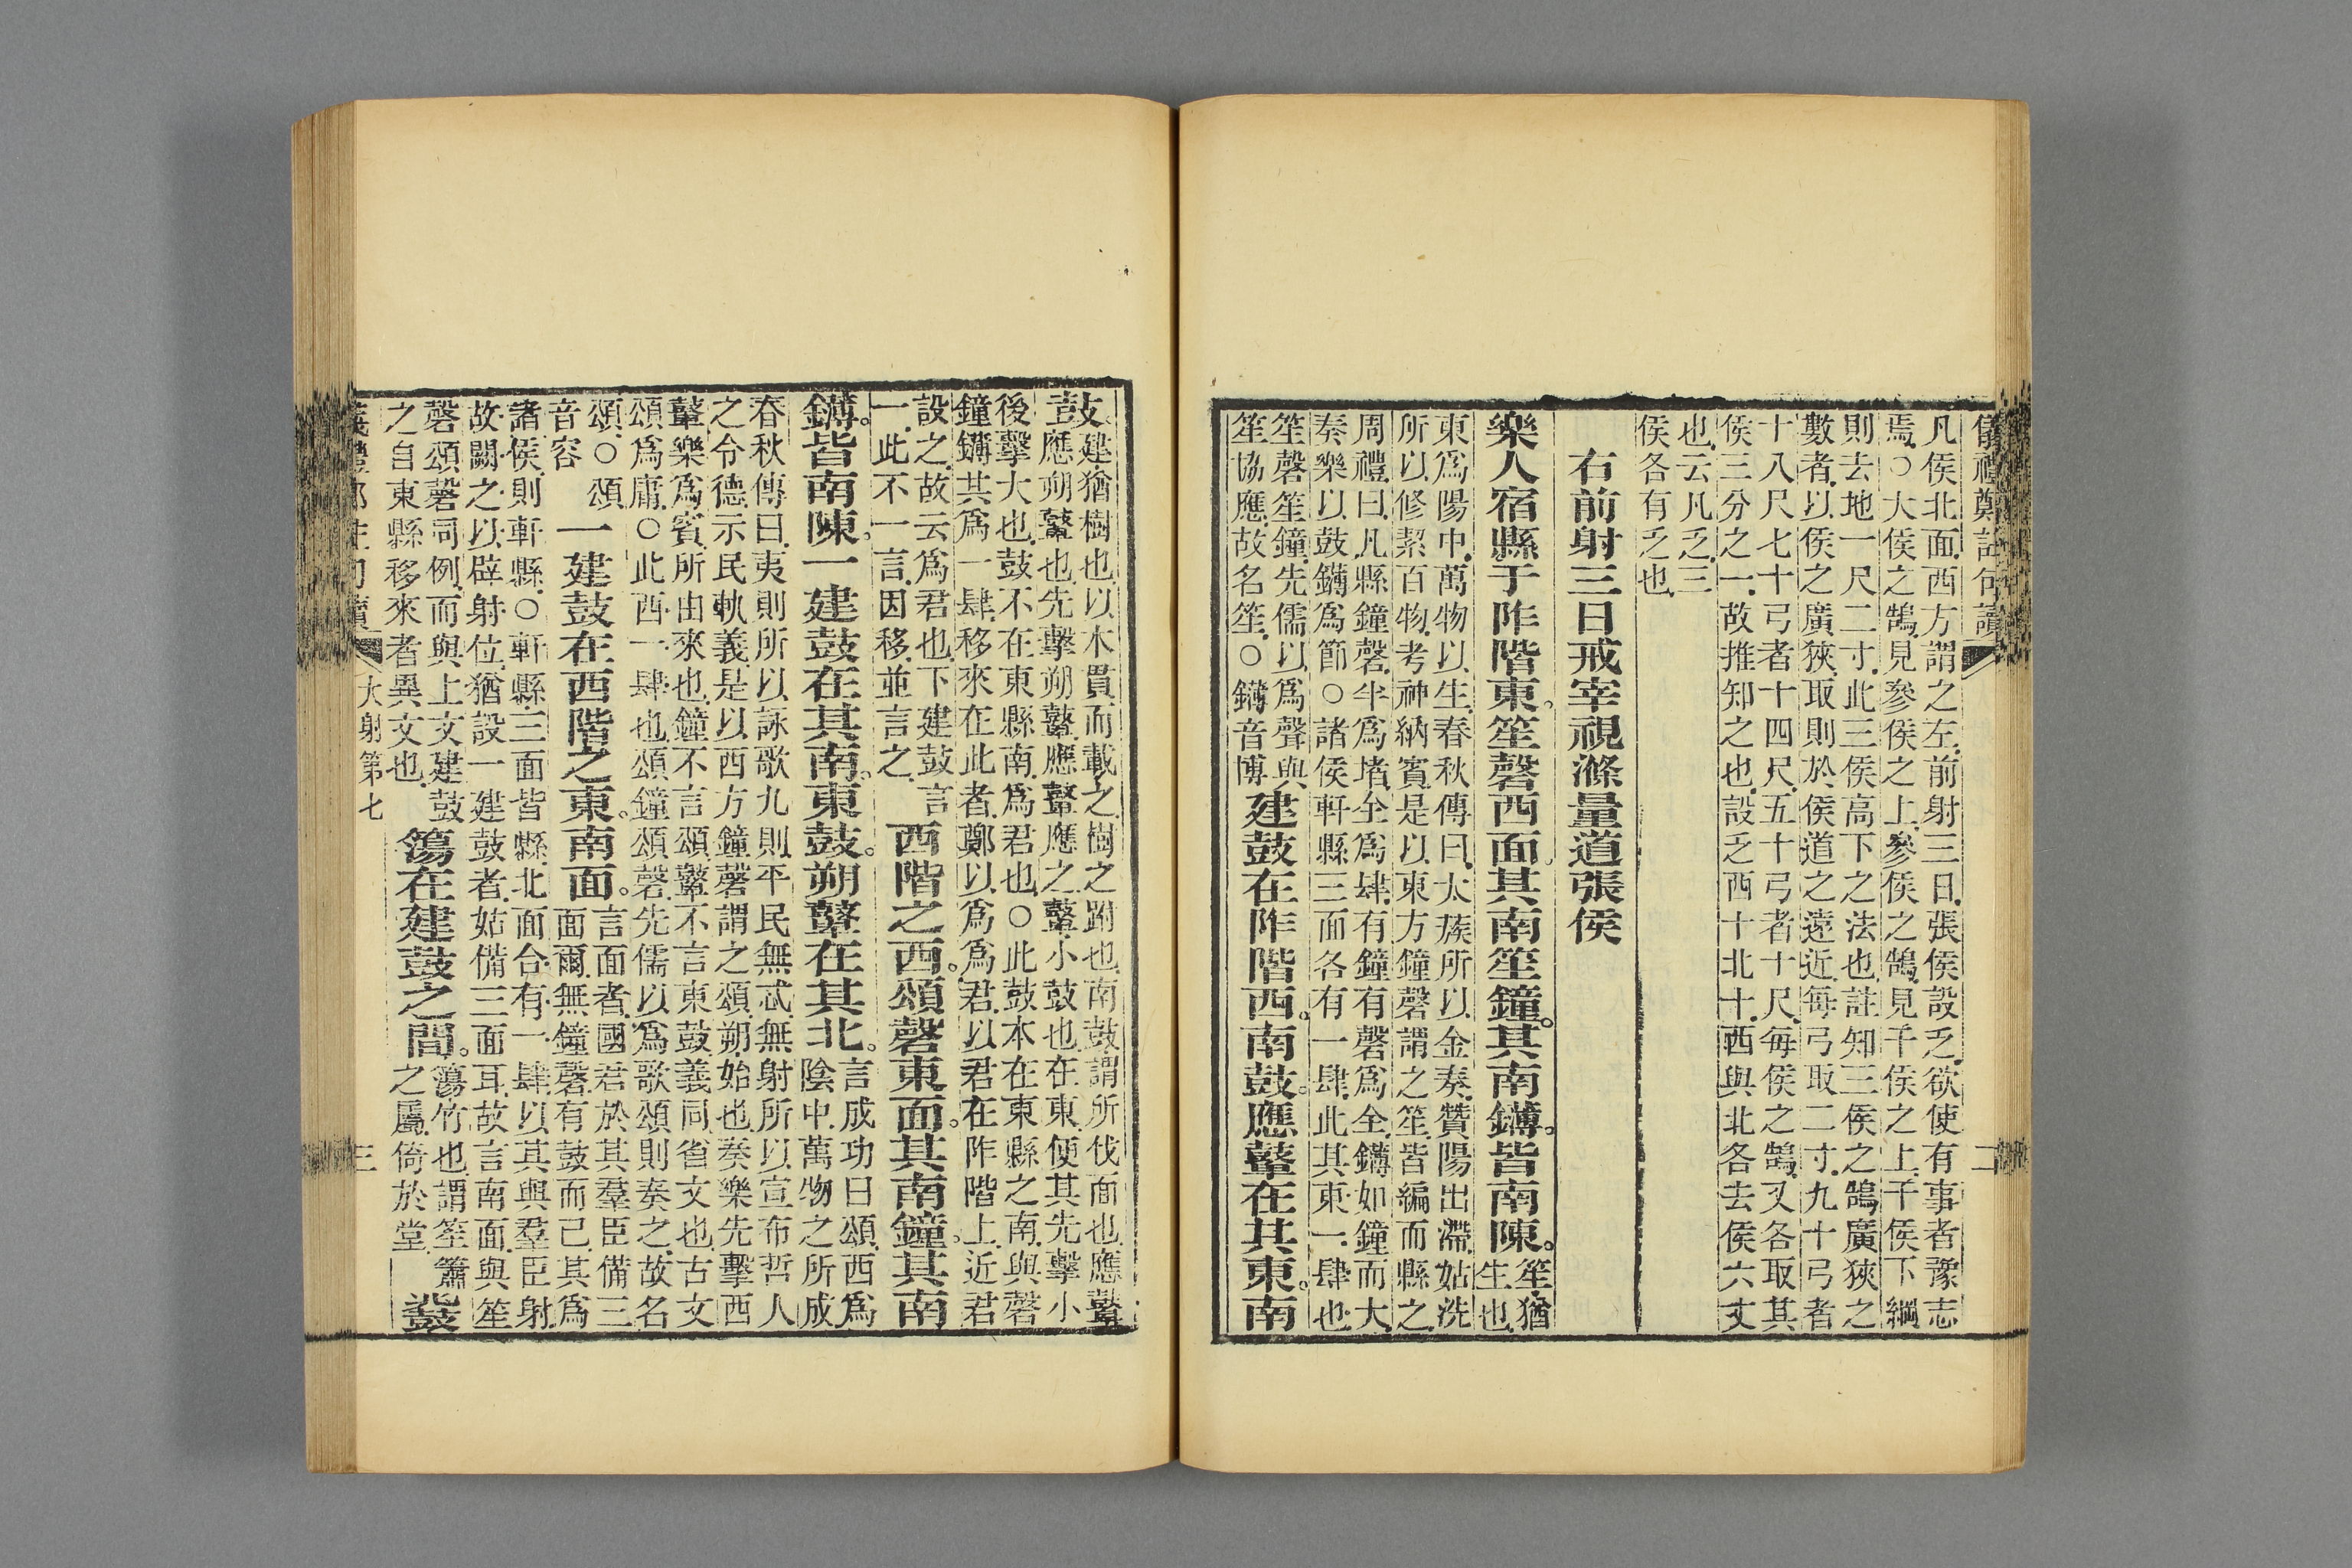 儀禮鄭註句讀
二
凡侯北面西方謂之左前射三日張侯設乏欲使有事者豫志
焉○大侯之鵠見參侯之上參侯之鵠見干侯之上干侯下綱
則去地一尺二寸此三侯高下之法也註知三侯之鵠廣狹之
數者以侯之廣狹取則於侯道之遠近每弓取二寸九十弓者
十八尺七十弓者十四尺五十弓者十尺每侯之鵠又各取其
侯三分之一故推知之也設乏西十北十西與北各去侯六丈
也云凡乏三
侯各有乏也
右前射三日戒宰視滌量道張侯
樂人宿縣于阼階東。笙磬西面其南笙鐘。其南鑮。皆南陳。笙猶
生也
東爲陽中萬物以生春秋傳曰太蔟所以金奏贊陽出滯姑洗
所以修絜百物考神納賓是以東方鐘磬謂之笙皆編而縣之
周禮曰凡縣鐘磬半爲堵全爲肆有鐘有磬爲全鑮如鐘而大
奏樂以鼓鑮爲節○諸侯軒縣三面各有一肆此其東一肆也
笙磬笙鐘先儒以爲聲與
笙協應故名笙○鑮音博
建鼓在阼階西。南鼓。應鼙在其東。南
鼓
建猶樹也以木貫而載之樹之跗也南鼓謂所伐面也應鼙
應朔鼙也先擊朔鼙應鼙應之鼙小鼓也在東便其先擊小
後擊大也鼓不在東縣南爲君也○此鼓本在東縣之南與磬
鐘鑮共爲一肆移來在此者鄭以爲爲君以君在阼階上近君
設之故云爲君也下建鼓言
一此不一言因移並言之
西階之西。頌磬東面。其南鐘。其南
鑮。皆南陳。一建鼓在其南。東鼓。朔鼙在其北。
言成功曰頌西爲
陰中萬物之所成
春秋傳曰夷則所以詠歌九則平民無忒無射所以宣布哲人
之令德示民軌義是以西方鐘磬謂之頌朔始也奏樂先擊西
鼙樂爲賓所由來也鐘不言頌鼙不言東鼓義同省文也古文
頌爲庸○此西一肆也頌鐘頌磬先儒以爲歌頌則奏之故名
頌○頌
音容
一建鼓在西階之東。南面。
言面者國君於其羣臣備三
面爾無鐘磬有鼓而已其爲
諸侯則軒縣○軒縣三面皆縣北面合有一肆以其與羣臣射
故闕之以辟射位猶設一建鼓者姑備三面耳故言南面與笙
磬頌磬同例而與上文建鼓
之自東縣移來者異文也
簜在建鼓之間。
簜竹也謂笙簫
之屬倚於堂
鼗
大射第七
三